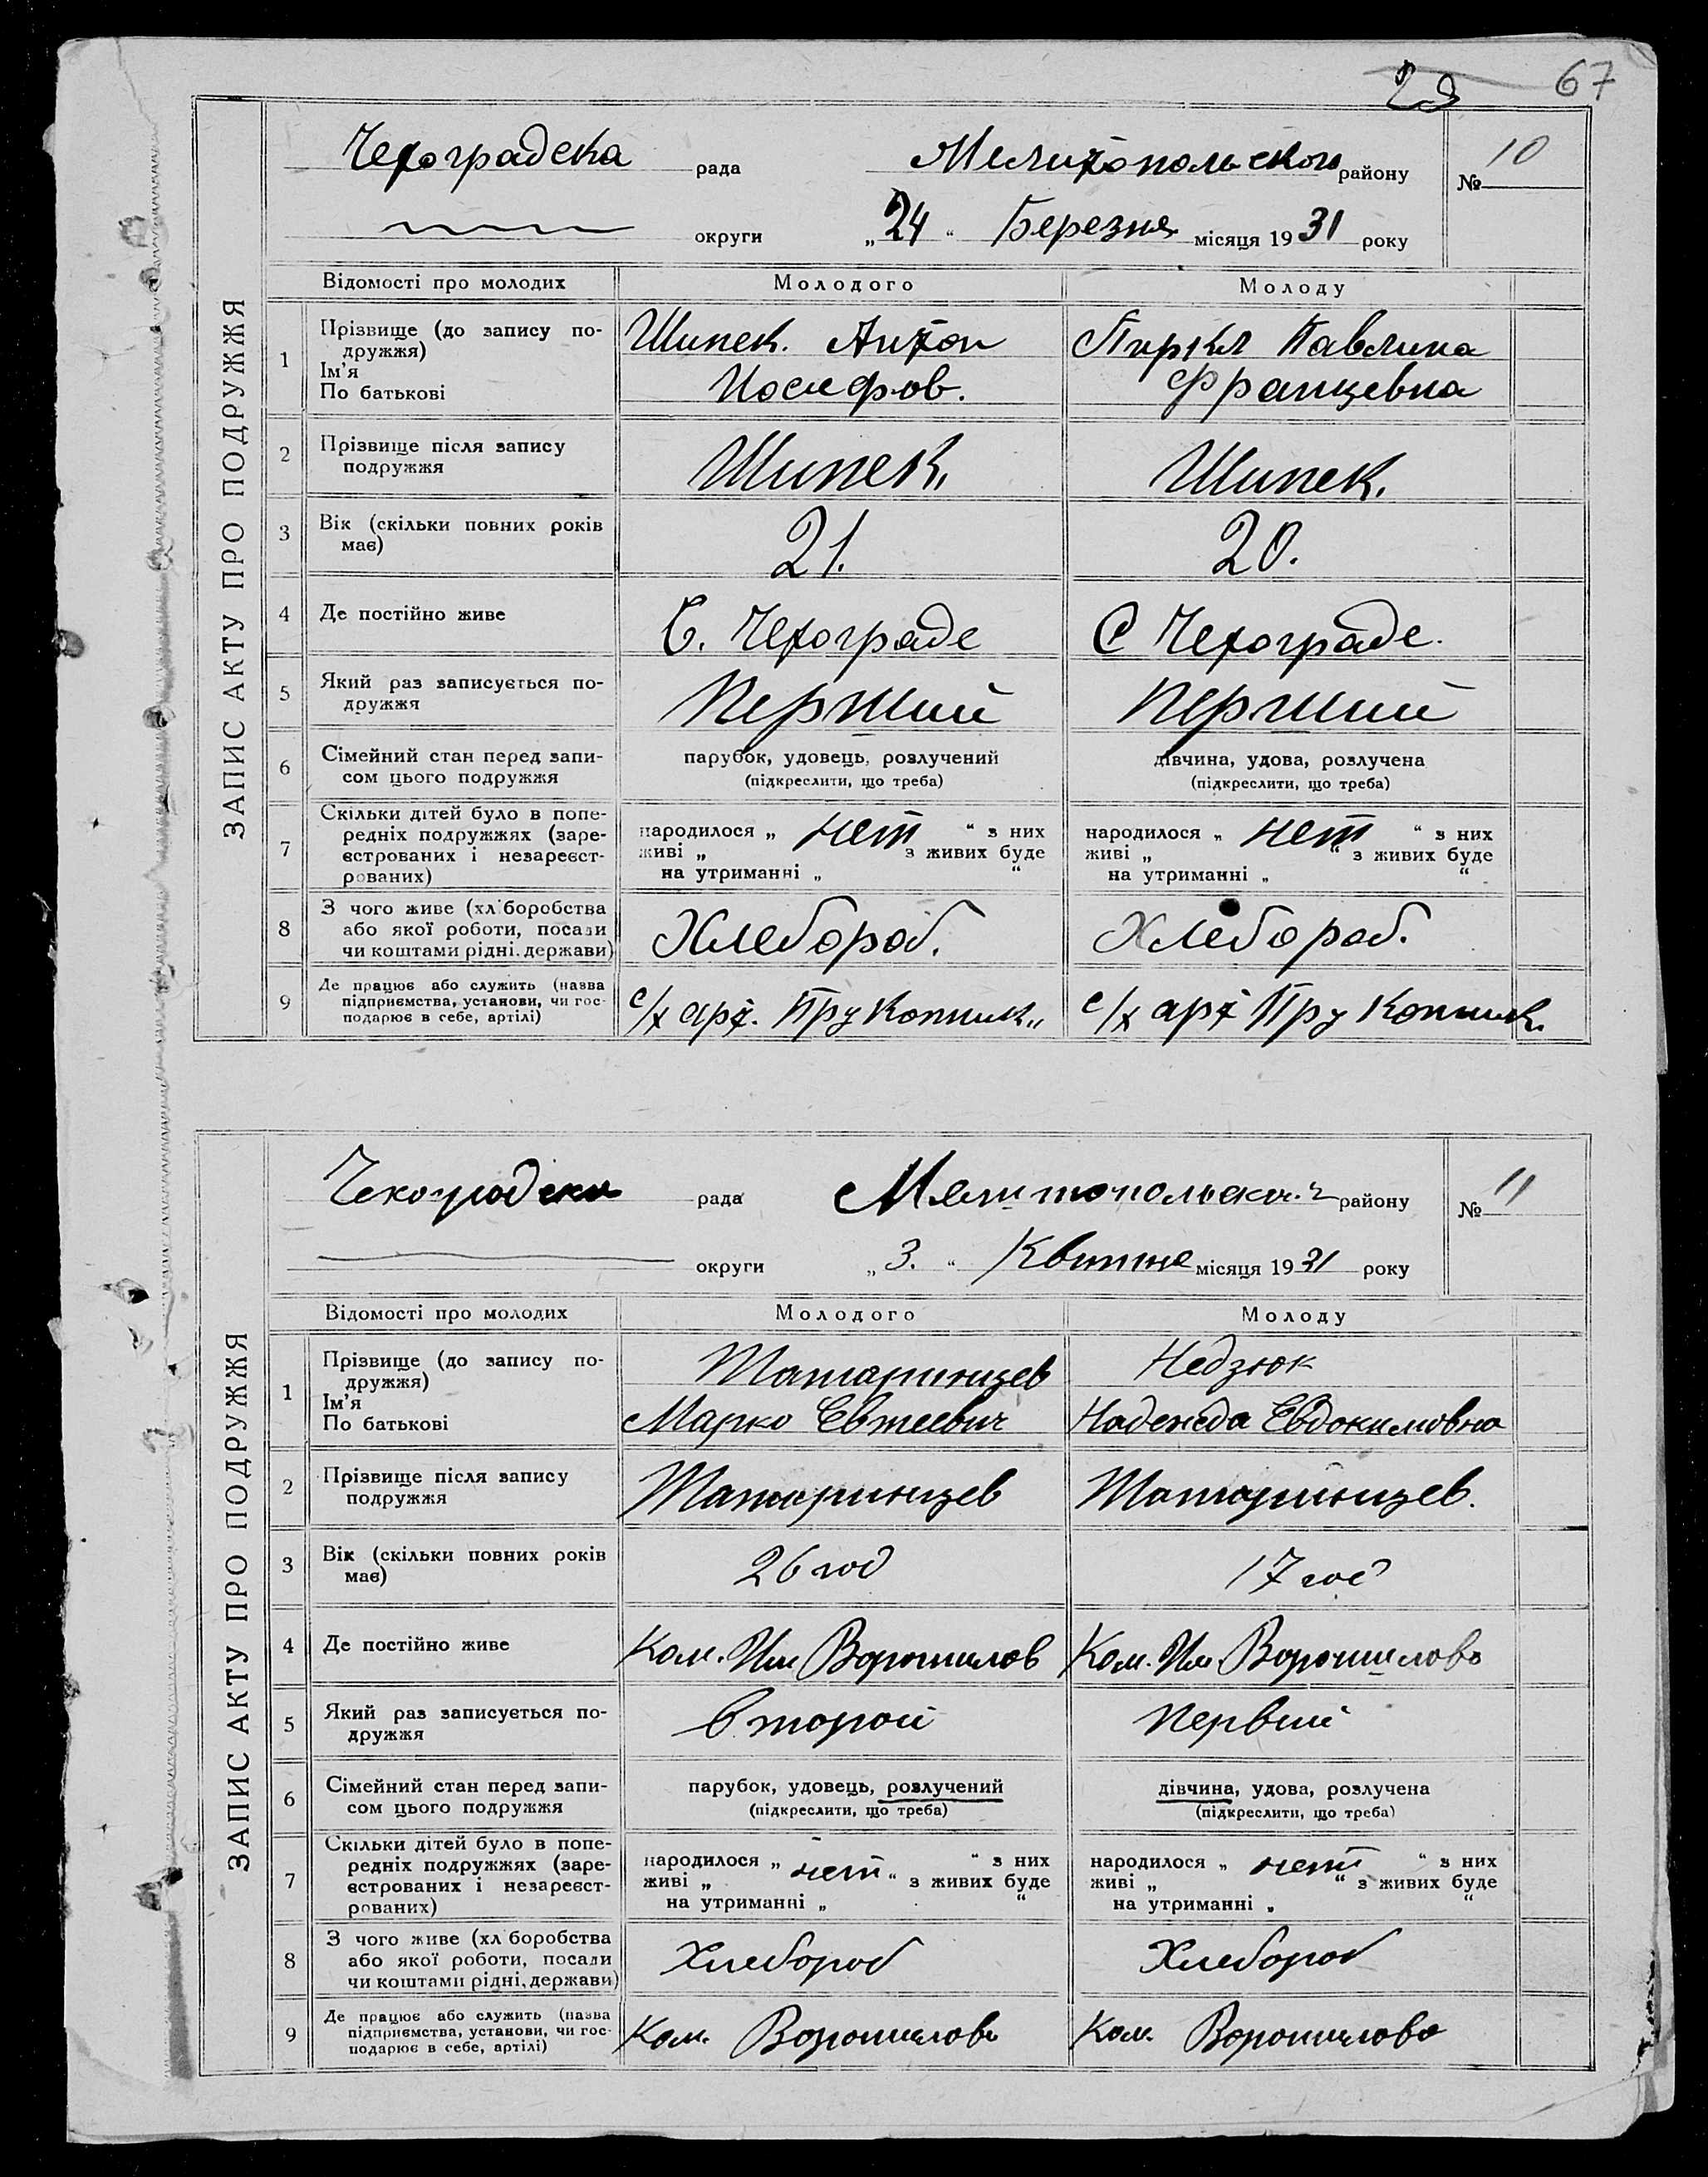 29 67
Чехоградска рада Мелитопольского району № 10
округи „24“ Березня місяця 1931 року
ЗАПИС АКТУ ПРО ПОДРУЖЖЯ
Відомості про молодих Молодого Молоду
1 Прізвище (до запису по- Шипек. Антон Пиркл Павлина
дружжя)
Ім'я
По батькові Иосифов. Францевна
2 Прізвище після запису Шипек. Шипек.
подружжя
3 Вік (скільки повних років 21. 20.
має)
4 Де постійно живе С. Чехограде С Чехограде.
5 Який раз записується по- Перший Перший
дружжя
6 Сімейний стан перед запи- парубок, удовець, розлучений дівчина, удова, розлучена
сом цього подружжя (підкреслити, що треба) (підкреслити, що треба)
7 Скільки дітей було в попе-
редніх подружжях (заре- народилося „ нет “ з них народилося „ нет “ з них
єстрованих і незареєст- живі „ з живих буде живі „ “ з живих буде
рованих) на утриманні „ “ на утриманні „ “
8 З чого живе (хліборобства
або якої роботи, посади Хлебороб. Хлебороб.
чи коштами рідні. держави)
9 Де працює або служить (назва
підприємства, установи, чи гос- с/х арт. Пру с/х арт Пру
подарює в себе, артілі)
рада району № 11
округи „3.“ Квитня місяця 1931 року
ЗАПИС АКТУ ПРО ПОДРУЖЖЯ
Відомості про молодих Молодого Молоду
1 Прізвище (до запису по- Татаринцев Недзюк
дружжя)
Ім'я
По батькові Марко Евтеевич Надежда Евдокимовна
2 Прізвище після запису Татаринцев Татаринцев.
подружжя
3 Вік (скільки повних років 26 год 17 год
має)
4 Де постійно живе Ком. Им Ворошилов Ком. Им. Ворошилова
5 Який раз записується по- второй первий
дружжя
6 Сімейний стан перед запи- парубок, удовець, розлучений дівчина, удова, розлучена
сом цього подружжя (підкреслити, що треба) (підкреслити, що треба)
7 Скільки дітей було в попе-
редніх подружжях (заре- народилося „ нет “ з них народилося „ нет “ з них
єстрованих і незареєст- живі „ “ з живих буде живі „ “ з живих буде
рованих) на утриманні „ “ на утриманні „ “
8 З чого живе (хліборобства
або якої роботи, посади Хлебороб Хлебороб
чи коштами рідні, держави)
9 Де працює або служить (назва
підприємства, установи, чи гос- Ком. Ворошилова Ком. Ворошилова
подарює в себе, артілі)